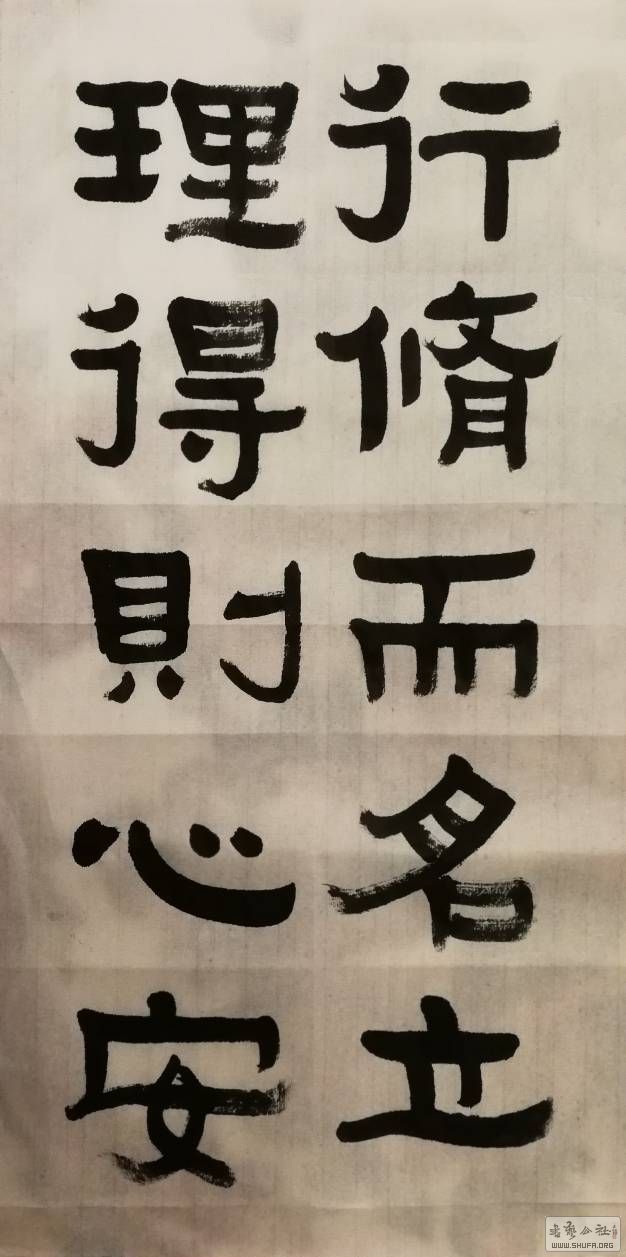 行脩而名立
理得則心安
书艺公社
WWW.SHUFA.ORG